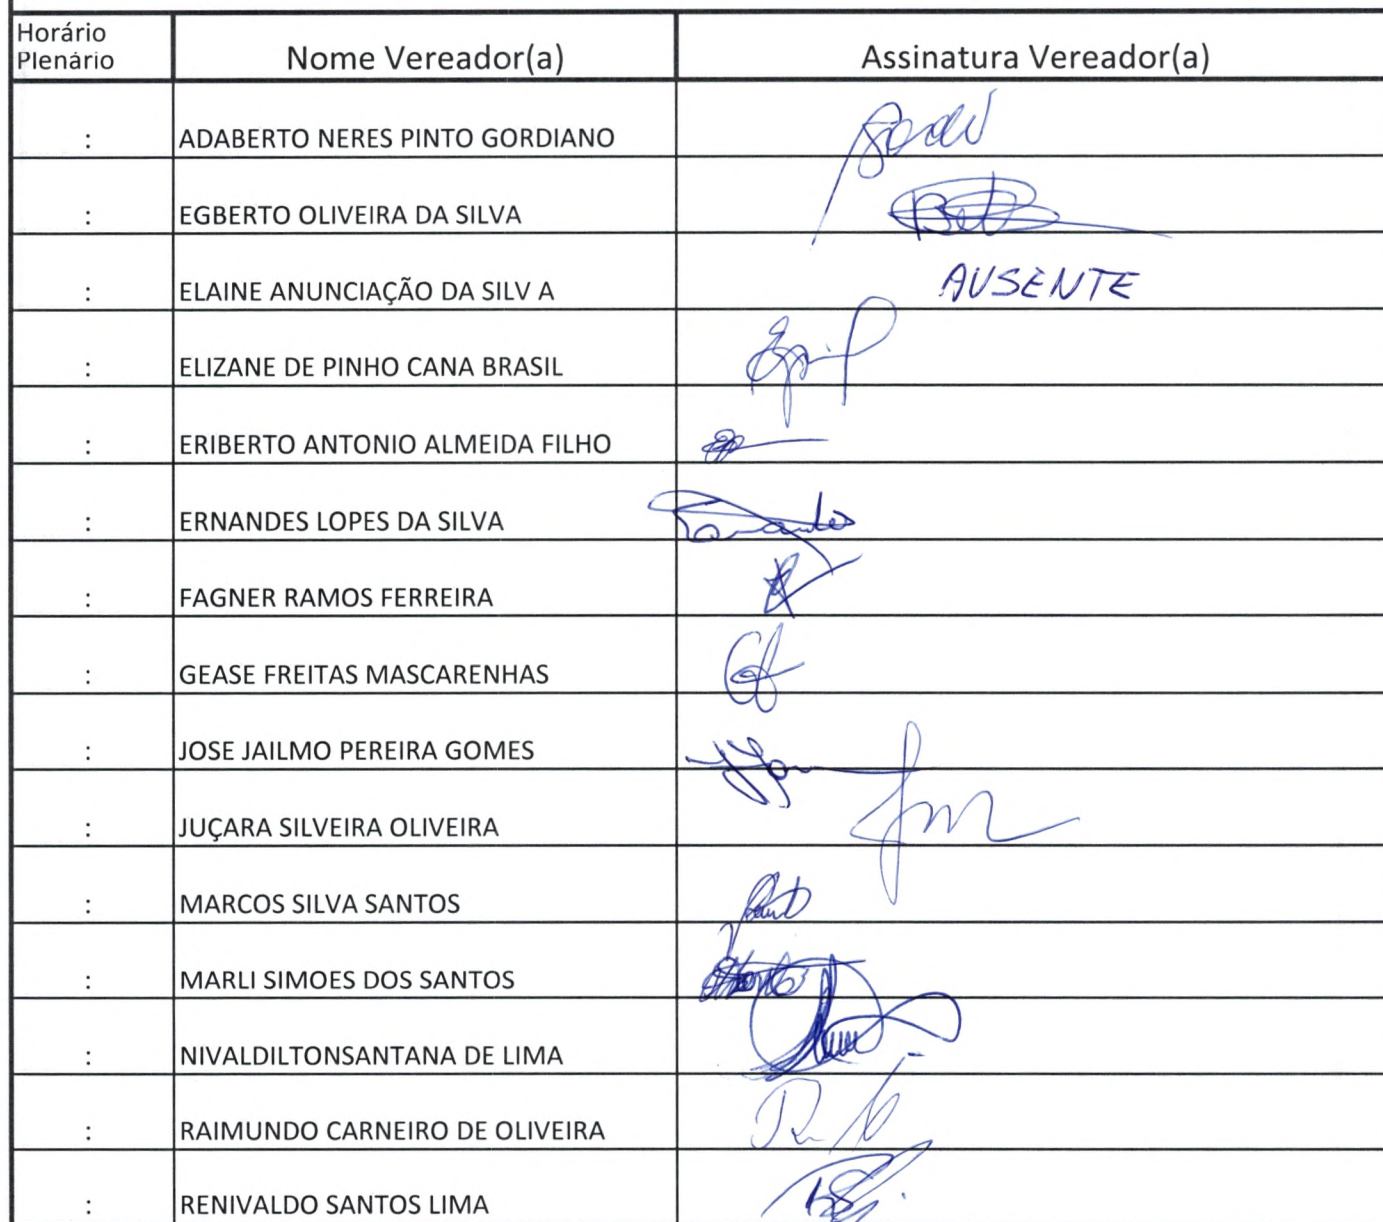 Horário
Plenário
Nome Vereador(a)
Assinatura Vereador(a)
: ADABERTO NERES PINTO GORDIANO
: EGBERTO OLIVEIRA DA SILVA
: ELAINE ANUNCIAÇÃO DA SILV A AUSENTE
: ELIZANE DE PINHO CANA BRASIL
: ERIBERTO ANTONIO ALMEIDA FILHO
: ERNANDES LOPES DA SILVA
: FAGNER RAMOS FERREIRA
: GEASE FREITAS MASCARENHAS
: JOSE JAILMO PEREIRA GOMES
: JUÇARA SILVEIRA OLIVEIRA
: MARCOS SILVA SANTOS
: MARLI SIMOES DOS SANTOS
: NIVALDILTONSANTANA DE LIMA
: RAIMUNDO CARNEIRO DE OLIVEIRA
: RENIVALDO SANTOS LIMA